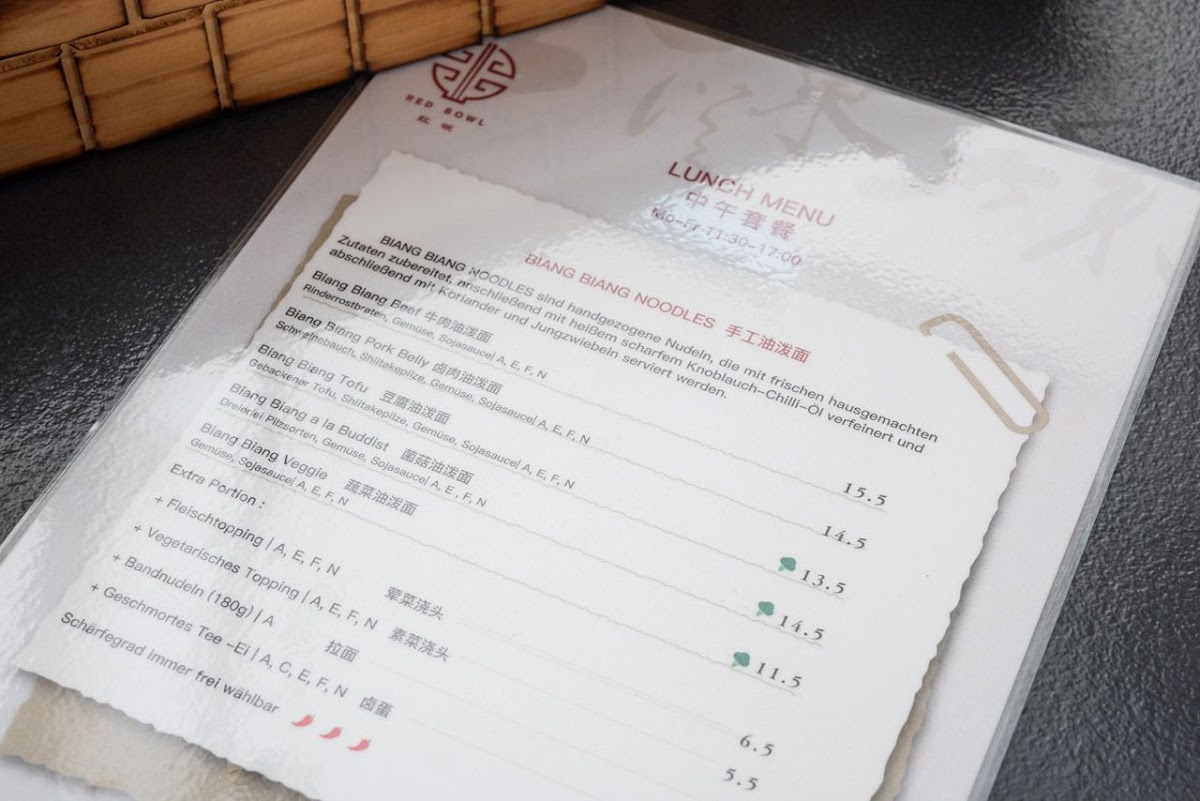 RED BOWL
红碗
LUNCH MENU
中午套餐
Mo-Fr 11:30-17:00
BIANG BIANG NOODLES 手工油泼面
BIANG BIANG NOODLES sind handgezogene Nudeln, die mit frischen hausgemachten
Zutaten zubereitet, anschließend mit heißem scharfem Knoblauch-Chilli-Öl verfeinert und
abschließend mit Koriander und Jungzwiebeln serviert werden.
Biang Biang Beef 牛肉油泼面 15.5
Rinderrostbraten, Gemüse, Sojasauce| A, E, F, N
Biang Biang Pork Belly 卤肉油泼面 14.5
Schweinebauch, Shiitakepilze, Gemüse, Sojasauce| A, E, F, N
Biang Biang Tofu 豆腐油泼面 13.5
Gebackener Tofu, Shiitakepilze, Gemüse, Sojasauce| A, E, F, N
Biang Biang a la Buddist 菌菇油泼面 14.5
Dreierlei Pilzsorten, Gemüse, Sojasauce| A, E , F, N
Biang Biang Veggie 蔬菜油泼面 11.5
Gemüse, Sojasauce| A, E, F, N
Extra Portion :
+ Fleischtopping | A, E, F, N 荤菜浇头 6.5
+ Vegetarisches Topping | A, E, F, N 素菜浇头 5.5
+ Bandnudeln (180g) | A 拉面
+ Geschmortes Tee -Ei | A, C, E, F, N 卤蛋
Schärfegrad immer frei wählbar